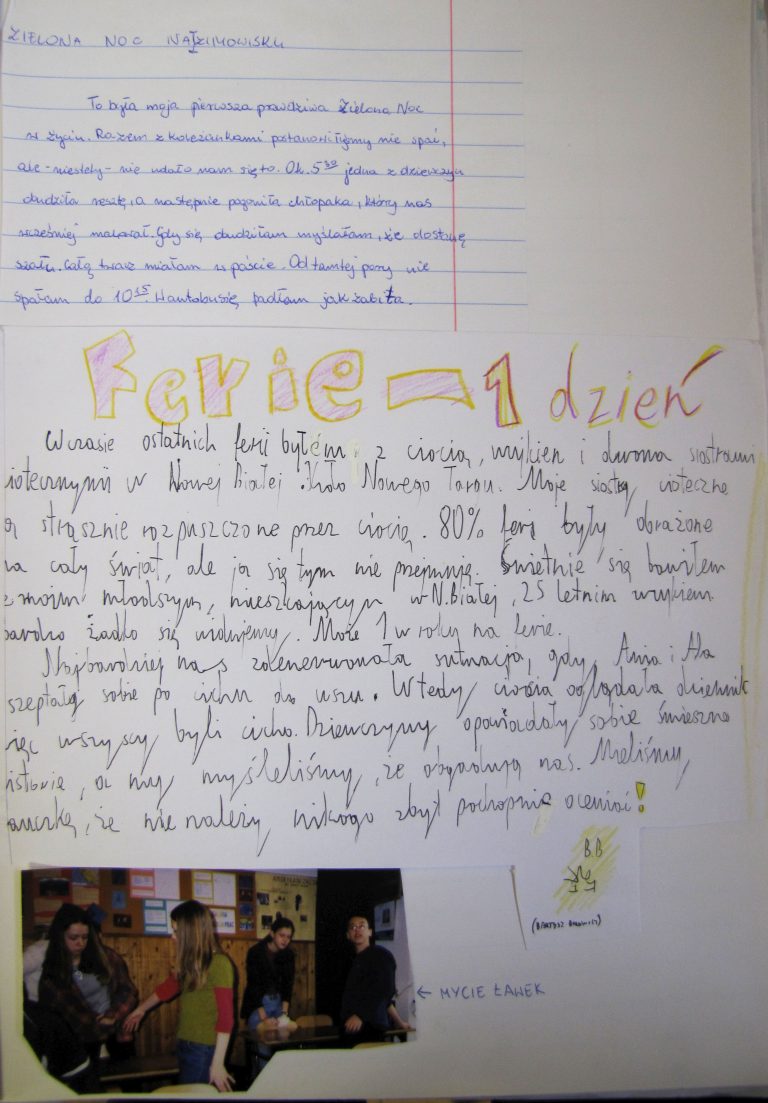 ZIELONA NOC NA ZIMOWISKU
To była moja pierwsza prawdziwa Zielona Noc
w życiu. Razem z koleżankami postanowiłyśmy nie spać,
ale - niestety - nie udało nam się to. Ok. 5³⁰ jedna z dziewczyn
budziła resztę, a następnie pogoniła chłopaka, który nas
wcześniej malował. Gdy się budziłam myślałam, że dostanę
szału. Całą twarz miałam w paście. Od tamtej pory nie
spałam do 10¹⁵. W autobusie padłam jak zabita.
Ferie - 1 dzień
W czasie ostatnich ferii byłem z ciocią, wujkiem i dwoma siostrami
iotecznymi w Nowej Białej. Koło Nowego Targu. Moje siostry cioteczne
są strasznie rozpuszczone przez ciocią. 80% ferii były obrażone
na cały świat, ale ja się tym nie przejmuję. Świetnie się bawiłem
z moim młodszym, mieszkającym w N. Białej, 25 letnim wujkiem.
bardzo żadko się widujemy. Może 1 w roku na ferie.
Najbardziej nas zdenerwowała sytuacja, gdy Ania i Ala
szeptały sobie po cichu do uszu. Wtedy ciocia oglądała dziennik
więc wszyscy byli cicho. Dziewczyny opowiadały sobie śmieszne
istorie, a my myśleliśmy, że obgadują nas. Mieliśmy
auczkę, że nie należy nikogo zbyt pochopnie oceniać!
B.B
← MYCIE ŁAWEK